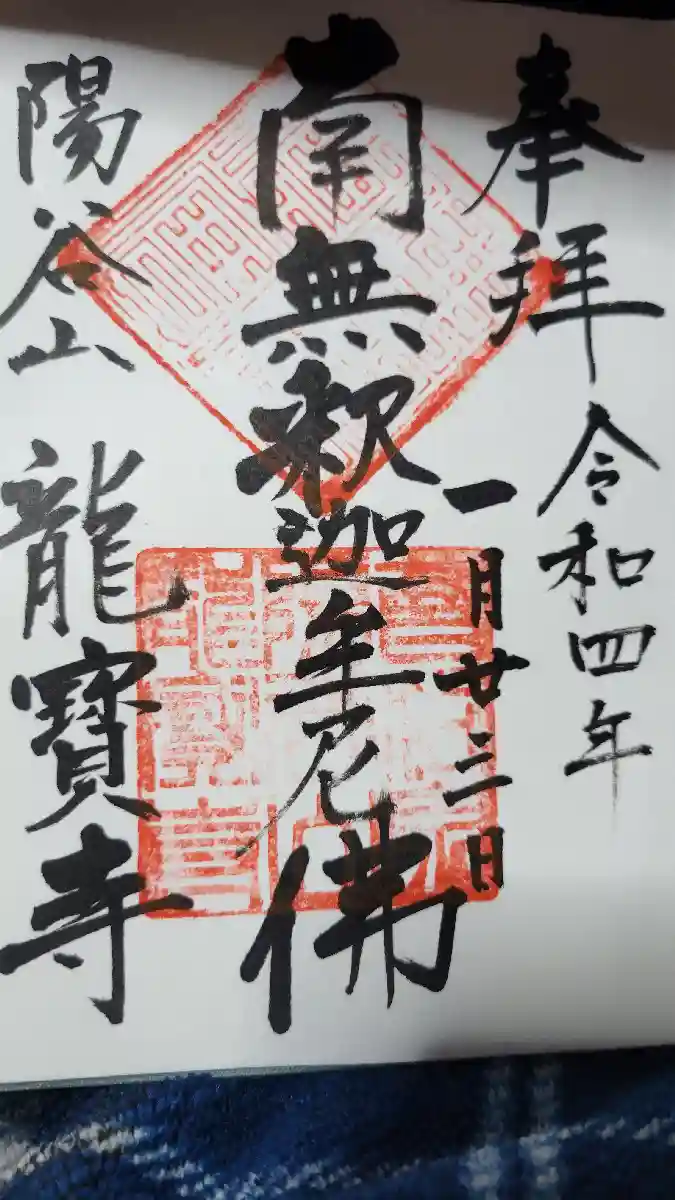 奉拝
令和四年
一月廿三日
南無釈迦牟尼佛
陽谷山
龍寶寺